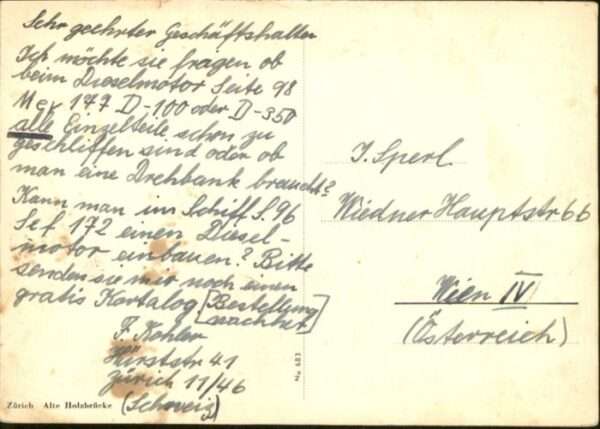 Sehr geehrter Geschäftshalter
Ich möchte sie fragen ob
beim Dieselmotor Seite 98
177 D-100 oder D-350
alle Einzelteile schon zu
geschliffen sind oder ob
man eine Drehbank braucht?
Kann man im Schiff S. 96
Sef 172 einen Diesel-
motor einbauen? Bitte
senden sie mir noch einen
gratis Kartalog. [Bestellung
nachher]
F. Kohler
Hürststr 41
Zürich 11/46
(Schweiz)
Zürich Alte Holzbrücke
No 683
J. Sperl
Wiedner Hauptstr 66
Wien IV
(Österreich)